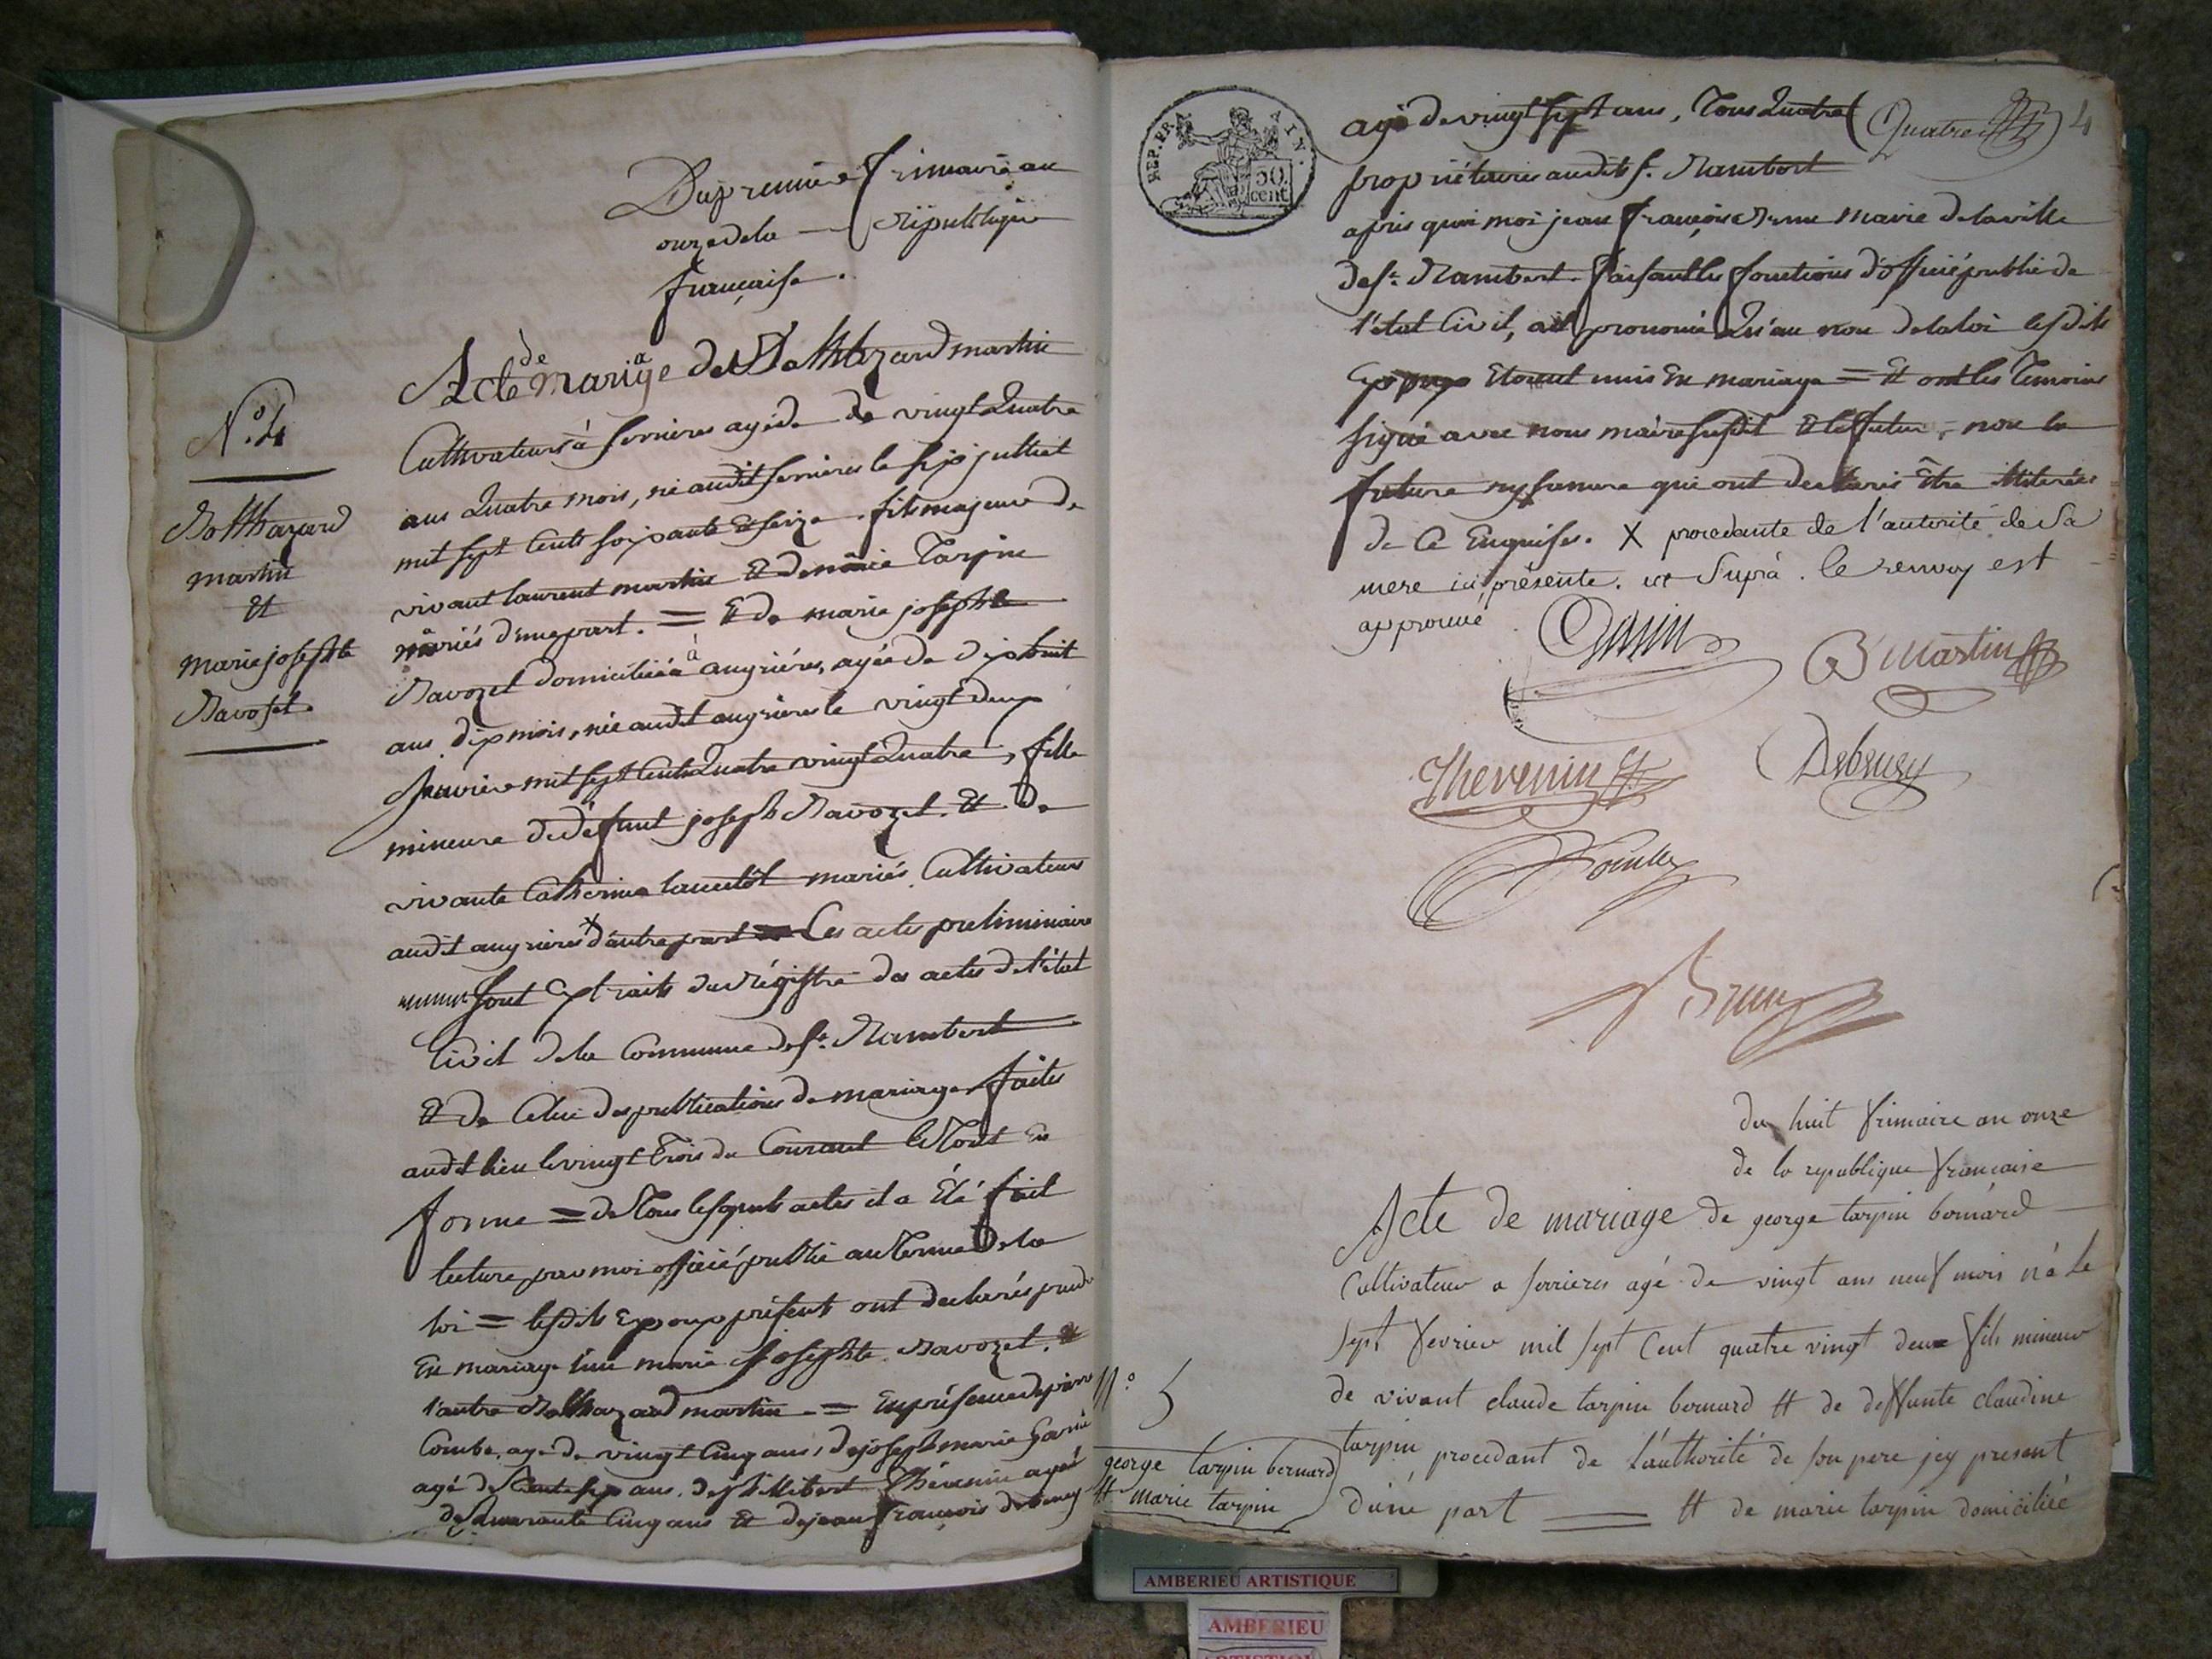 Du premier frimaire an
onze de la — République
française.
Acte de mariage de Balthazard martin
N.º 4
Balthazard
martin
Et
marie josephte
Ravozet.
Cultivateur à serrieres agé de de vingt Quatre
ans Quatre mois, né audit serrieres le six juillet
mil sept Cents soixante Et seize. fils majeur de
vivant laurent martin Et de marie Tarpin
mariés d'une part. = Et de marie josephte
Ravozet domiciliée à angriéres, agée de dix huit
ans dix mois, née audit angrieres le vingt deux
janvier mil sept Cents Quatre vingt Quatre, fille
mineure de défunt joseph Ravozet. Et De
vivante Catherine mariés Cultivateurs
audit angrieres X d'autre part = Les actes preliminaire
sont Extraits du Régistre des actes de l'état
Civil de la Commune de St. Rambert
Et de Celui des publications de mariage faites
audit lieu le vingt Trois du Courant le Tout En
forme = de Tous lesquels actes il a Été fait
lecture par moi officié public au Terme de la
loi = lesdits Epoux présents ont declarés prendre
En mariage l'un marie Josephte Ravozet. Et
l'autre Balthazard martin = En présence de pierre
Combe, agé de vingt Cinq ans, de joseph marie
agé de ans. de Philibert Thévenin agé
de Quarante Cinq ans Et de jean François debeney
REP. FRA AIN.
50 cent
agé de vingt sept ans, Tous Quatre Quatre 4
propriétaires audit St. Rambert
après quoi moi jean françois Brun Maire de la ville
de St. Rambert. faisant les fonctions d'officié public de
l'état Civil, ait prononcé Qu'au nom de la loi lesdits
Epoux Etoient unis En mariage = Et ont les Temoins
signé avec nous maire susdit Et le futur, non la
future ny sa mere qui ont declarés Être illiterées
de Ce Enquises. X procedante de l'autorité de Sa
mere ici présente. ut Suprà. le renvoy est
approuvé.
B martin
Thevenin
Debeney
Brun
du huit frimaire an onze
de la republique francaise
Acte de mariage de george tarpin bernard
Cultivateur a serrieres agé de vingt ans neuf mois né le
sept fevrier mil sept Cent quatre vingt deux fils mineur
N.º 5
de vivant claude tarpin bernard Et de deffunte claudine
tarpin procedant de l'authorité de son pere jcy present
george tarpin bernard
Et marie tarpin
d'une part — Et de marie tarpin domiciliée
AMBERIEU ARTISTIQUE
AMBERIEU
ARTISTIQUE